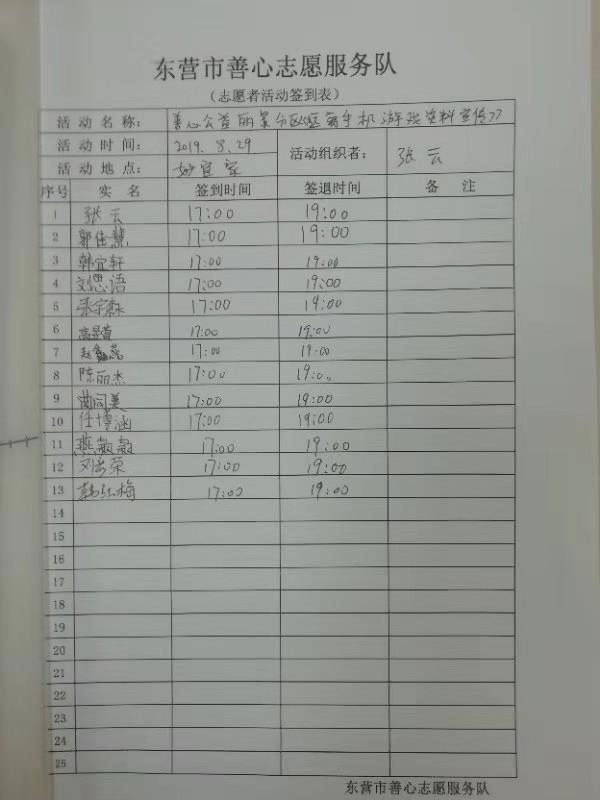 东营市善心志愿服务队
(志愿者活动签到表)
活动名称: 善心公益 手机游戏资料宣传
活动时间: 2019.8.29 活动组织者: 张云
活动地点:
序号 实名 签到时间 签退时间 备注
1 张云 17:00 19:00
2 郭佳慧 17:00 19:00
3 韩宜轩 17:00 19:00
4 刘思语 17:00 19:00
5 17:00 19:00
6 17:00 19:00
7 17:00 19:00
8 陈丽杰 17:00 19:00
9 17:00 19:00
10 任博涵 17:00 19:00
11 燕敏敏 17:00 19:00
12 17:00 19:00
13 韩红梅 17:00 19:00
14
15
16
17
18
19
20
21
22
23
24
25
东营市善心志愿服务队